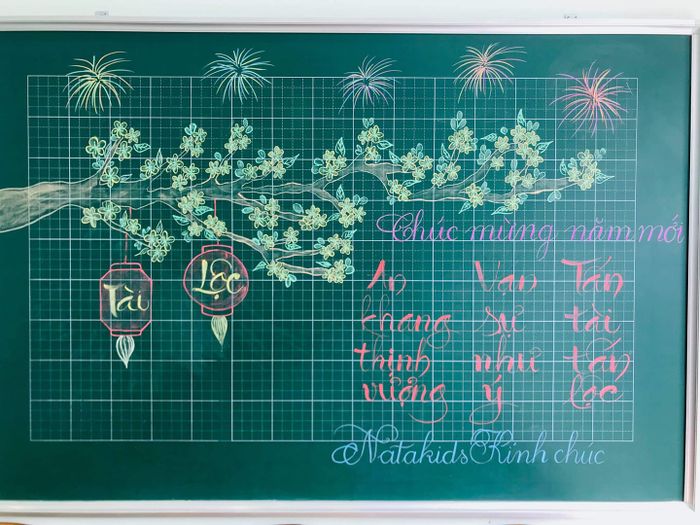 Tài
Lộc
Chúc mừng năm mới
An khang thịnh vượng
Vạn sự như ý
Tấn tài tấn lộc
Natakids Kính chúc